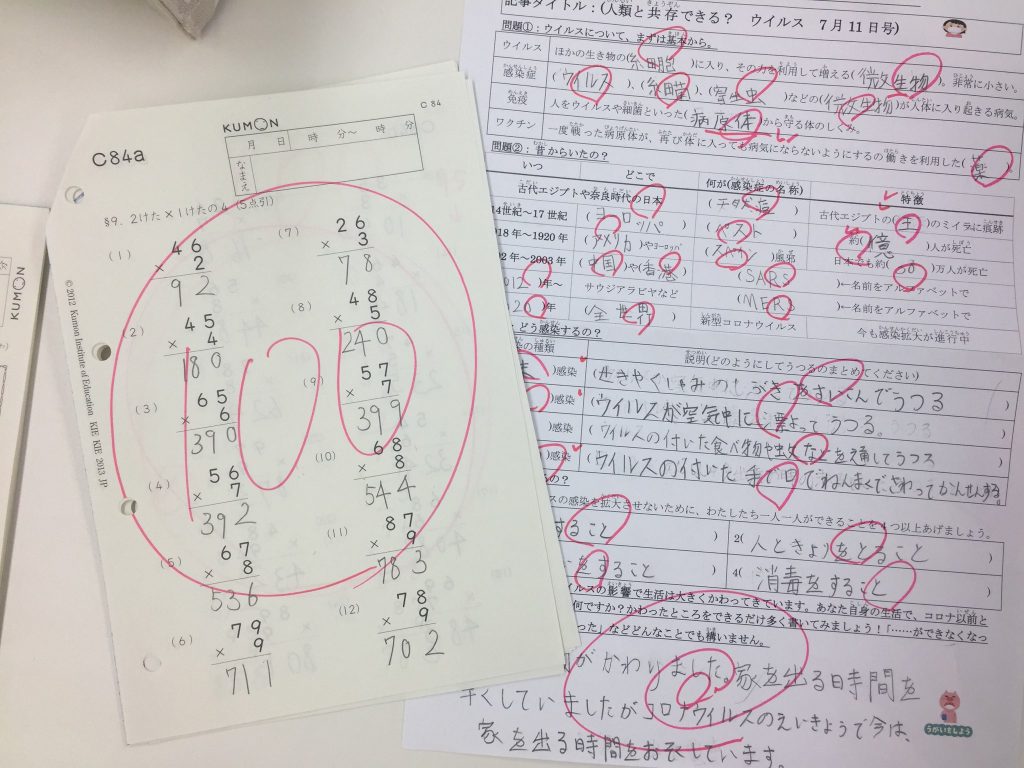 KUMON
C 84
C84a
月 日 時 分〜 時 分
なまえ
§9. 2けた×1けたの4 (5点引)
(1) 46 × 2
92
(2) 45 × 4
180
(3) 65 × 6
390
(4) 56 × 7
392
(5) 67 × 8
536
(6) 79 × 9
711
(7) 26 × 3
78
(8) 48 × 5
240
(9) 57 × 7
399
(10) 68 × 8
544
(11) 87 × 9
783
(12) 78 × 9
702
100
© 2012 Kumon Institute of Education KIE KIE 2013.JP
KUMON
記事タイトル：(人類と共存できる？ ウイルス 7月11日号)
問題①：ウイルスについて、まずは基本から。
ウイルス ほかの生き物の(細胞)に入り、その力を利用して増える(微生物)。非常に小さい。
感染症 (ウイルス)、(細菌)、(寄生虫)などの(微生物)が人体に入り起きる病気。
免疫 人をウイルスや細菌といった(病原体)から守る体のしくみ。
ワクチン 一度戦った病原体が、再び体に入っても病気にならないようにするの働きを利用した(薬
問題②：昔からいたの？
いつ どこで 何が(感染症の名称) 特徴
古代エジプトや奈良時代の日本 古代エジプトの( )のミイラに痕跡
14世紀〜17世紀 (ヨーロッパ) (ペスト) 約(億)人が死亡
18年〜1920年 (アメリカ)やヨーロッパ (スペイン)風邪 日本でも約( )万人が死亡
02年〜2003年 (中国)や(香港) (SARS)←名前をアルファベットで
012)年〜 サウジアラビヤなど (MERS)←名前をアルファベットで
)年 (全世界) 新型コロナウイルス 今も感染拡大が進行中
：どう感染するの？
染の種類 説明(どのようにしてうつるのまとめてください)
)感染
)感染 (ウイルスが空気中に漂よってうつる。
)感染 (ウイルスの付いた食べ物や虫などを通してうつる
)感染 (ウイルスの付いた手で口でねんまくでさわってかんせんする。
の？
スの感染を拡大させないために、わたしたち一人一人ができることを4つ以上あげましょう。
すること ) 2(人ときょりをとること )
をすること ) 4(消毒をすること )
イルスの影響で生活は大きくかわってきています。あなた自身の生活で、コロナ以前と
何ですか？かわったところをできるだけ多く書いてみましょう！「……ができなくなっ
った」などどんなことでも構いません。
がかわりました。家を出る時間を
早くしていましたがコロナウイルスのえいきょうで今は、
家を出る時間をおそくしています。
うがいをしよう